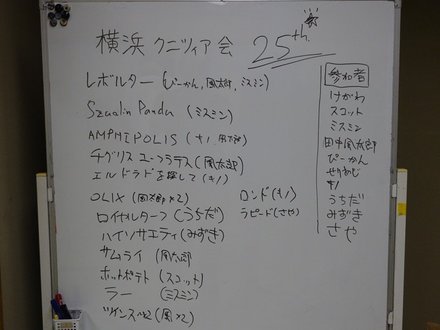 横浜 クニツィア会 25th.
レボルター (ぴーかん, 風太郎, ミスミン)
Szaalin Panda (ミスミン)
AMPHIPOLIS (キノ 風太郎)
チグリス ユーフラテス (風太郎)
エルドラドを探して (キノ)
OLIX (風太郎×2)
ロイヤルターフ (うちだ)
ハイソサエティ (みずき)
サムライ (風太郎
ホットポテト (スコット)
ラー (ミスミン)
ツインズ×2 (風×2)
ロンド (キノ)
ラピード (さや)
参加者
けがわ
スコット
ミスミン
田中風太郎
ぴーかん
キノ
うちだ
みずき
さや